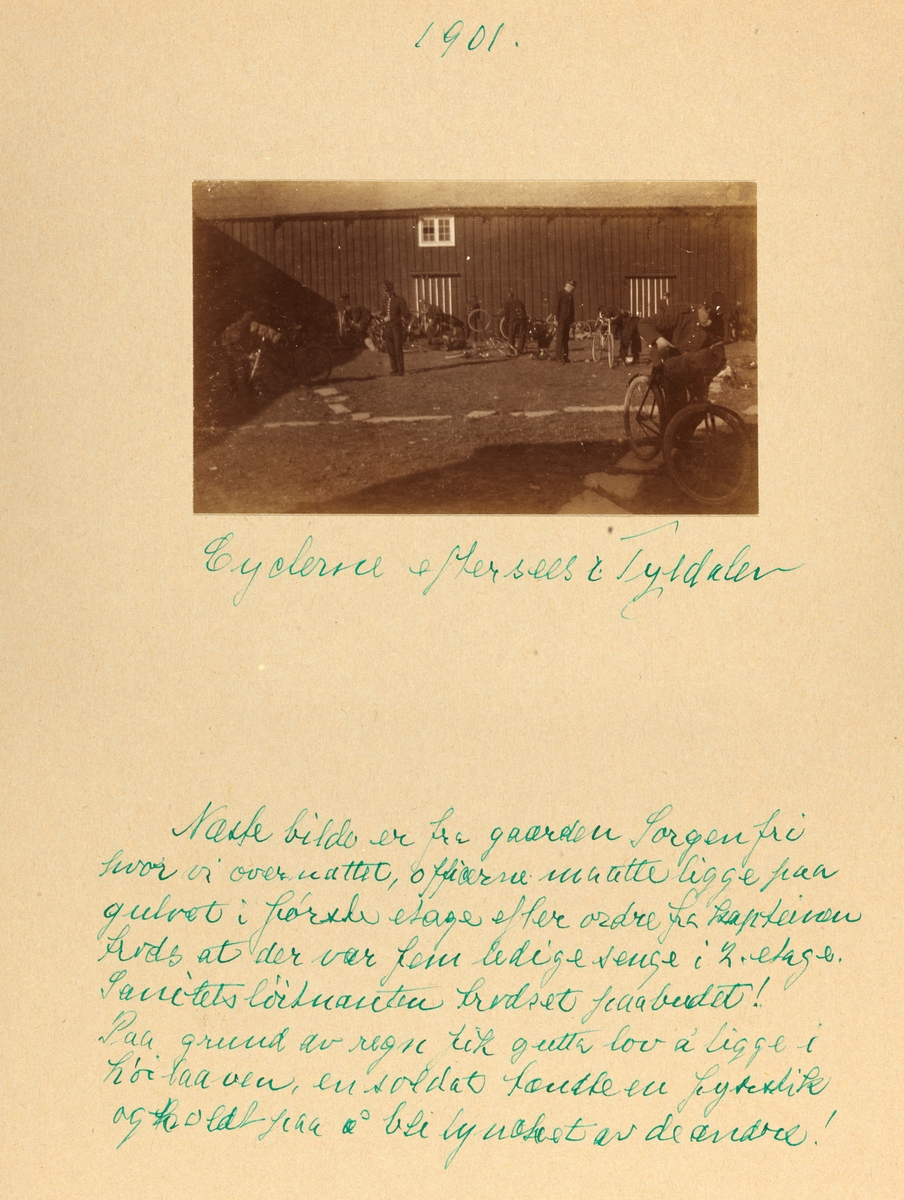 1901.
Cyclerne eftersees i Tyldalen
Næste bilde er fra gaarden Sorgenfri
hvor vi overnattet, officerne maatte ligge paa
gulvet i første etage efter ordre fra kapteinen
trods at der var fem ledige senge i 2. etage.
Sanitetsløitnanten trodset paabudet!
Paa grund av regn fik gutta lov å ligge i
høilaaven, en soldat tændte en fyrstik
og holdt paa å bli lynchet av de andre!